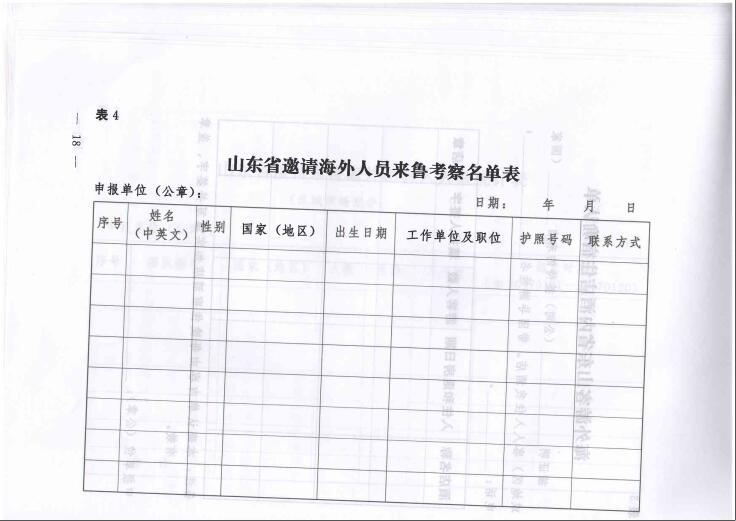 表 4
— 18 —
山东省邀请海外人员来鲁考察名单表
申报单位（公章）：
日期： 年 月 日
序号 姓名（中英文） 性别 国家（地区） 出生日期 工作单位及职位 护照号码 联系方式